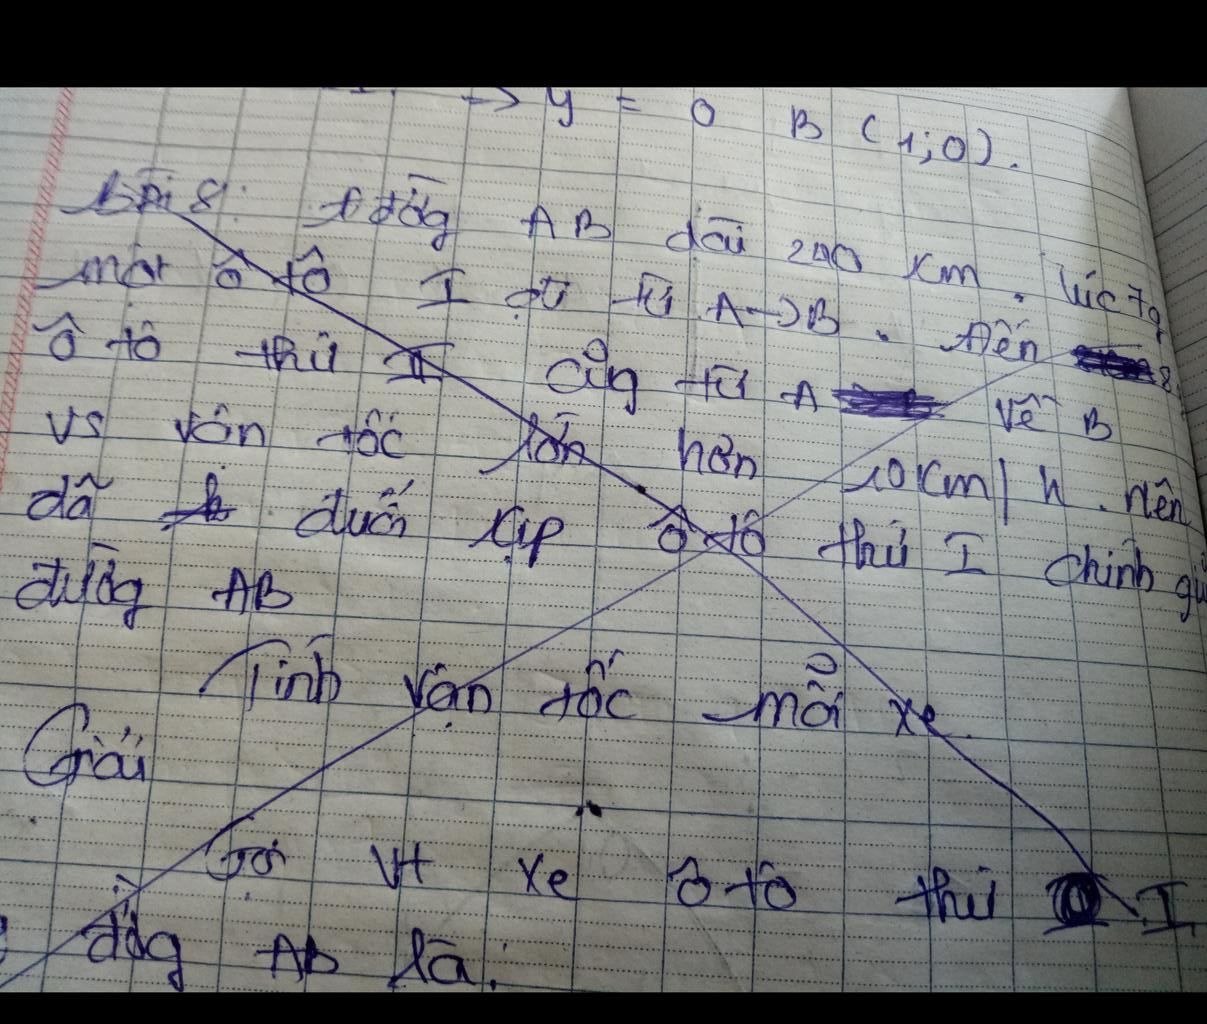 → y = 0 B (1;0).
Bài 8: đường AB dài 200 km. lúc 7g
một ô tô I đi từ A→B. Đến 8
ô tô thứ II cũg từ A về B
vs vận tốc lớn hơn 10km/h. nên
đã đuổi kịp ô tô thứ I chính
đườg AB
Tính vận tốc mỗi xe.
Giải
Gọi vt xe ô tô thứ I
AB là: